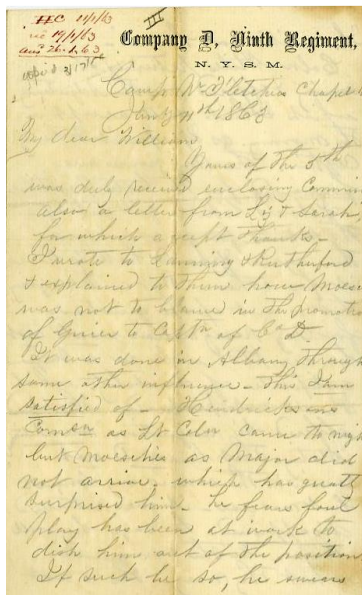 III
HC 11/1/63
rec 19/1/63
ans 26.1.63
Company D, Ninth Regiment,
N. Y. S. M.
Camp Nr Fletchers Chapel
Jany 11th 1863
My dear William
Yours of the 5th
was duly received enclosing
also a letter from Liz & Sarah
for which accept thanks -
I wrote to Lanning & Rutherford
& explained to them how Moesch
was not to blame in the promotion
of Grier to Captn of Co D
It was done in Albany through
some other influence - This I am
satisfied of - Hendrickson's
Comsn as Lt Coln came to night
but Moesches as Major did
not arrive, which has greatly
surprised him - he fears foul
play has been at work to
dish him out of the position
If such be so, he swears